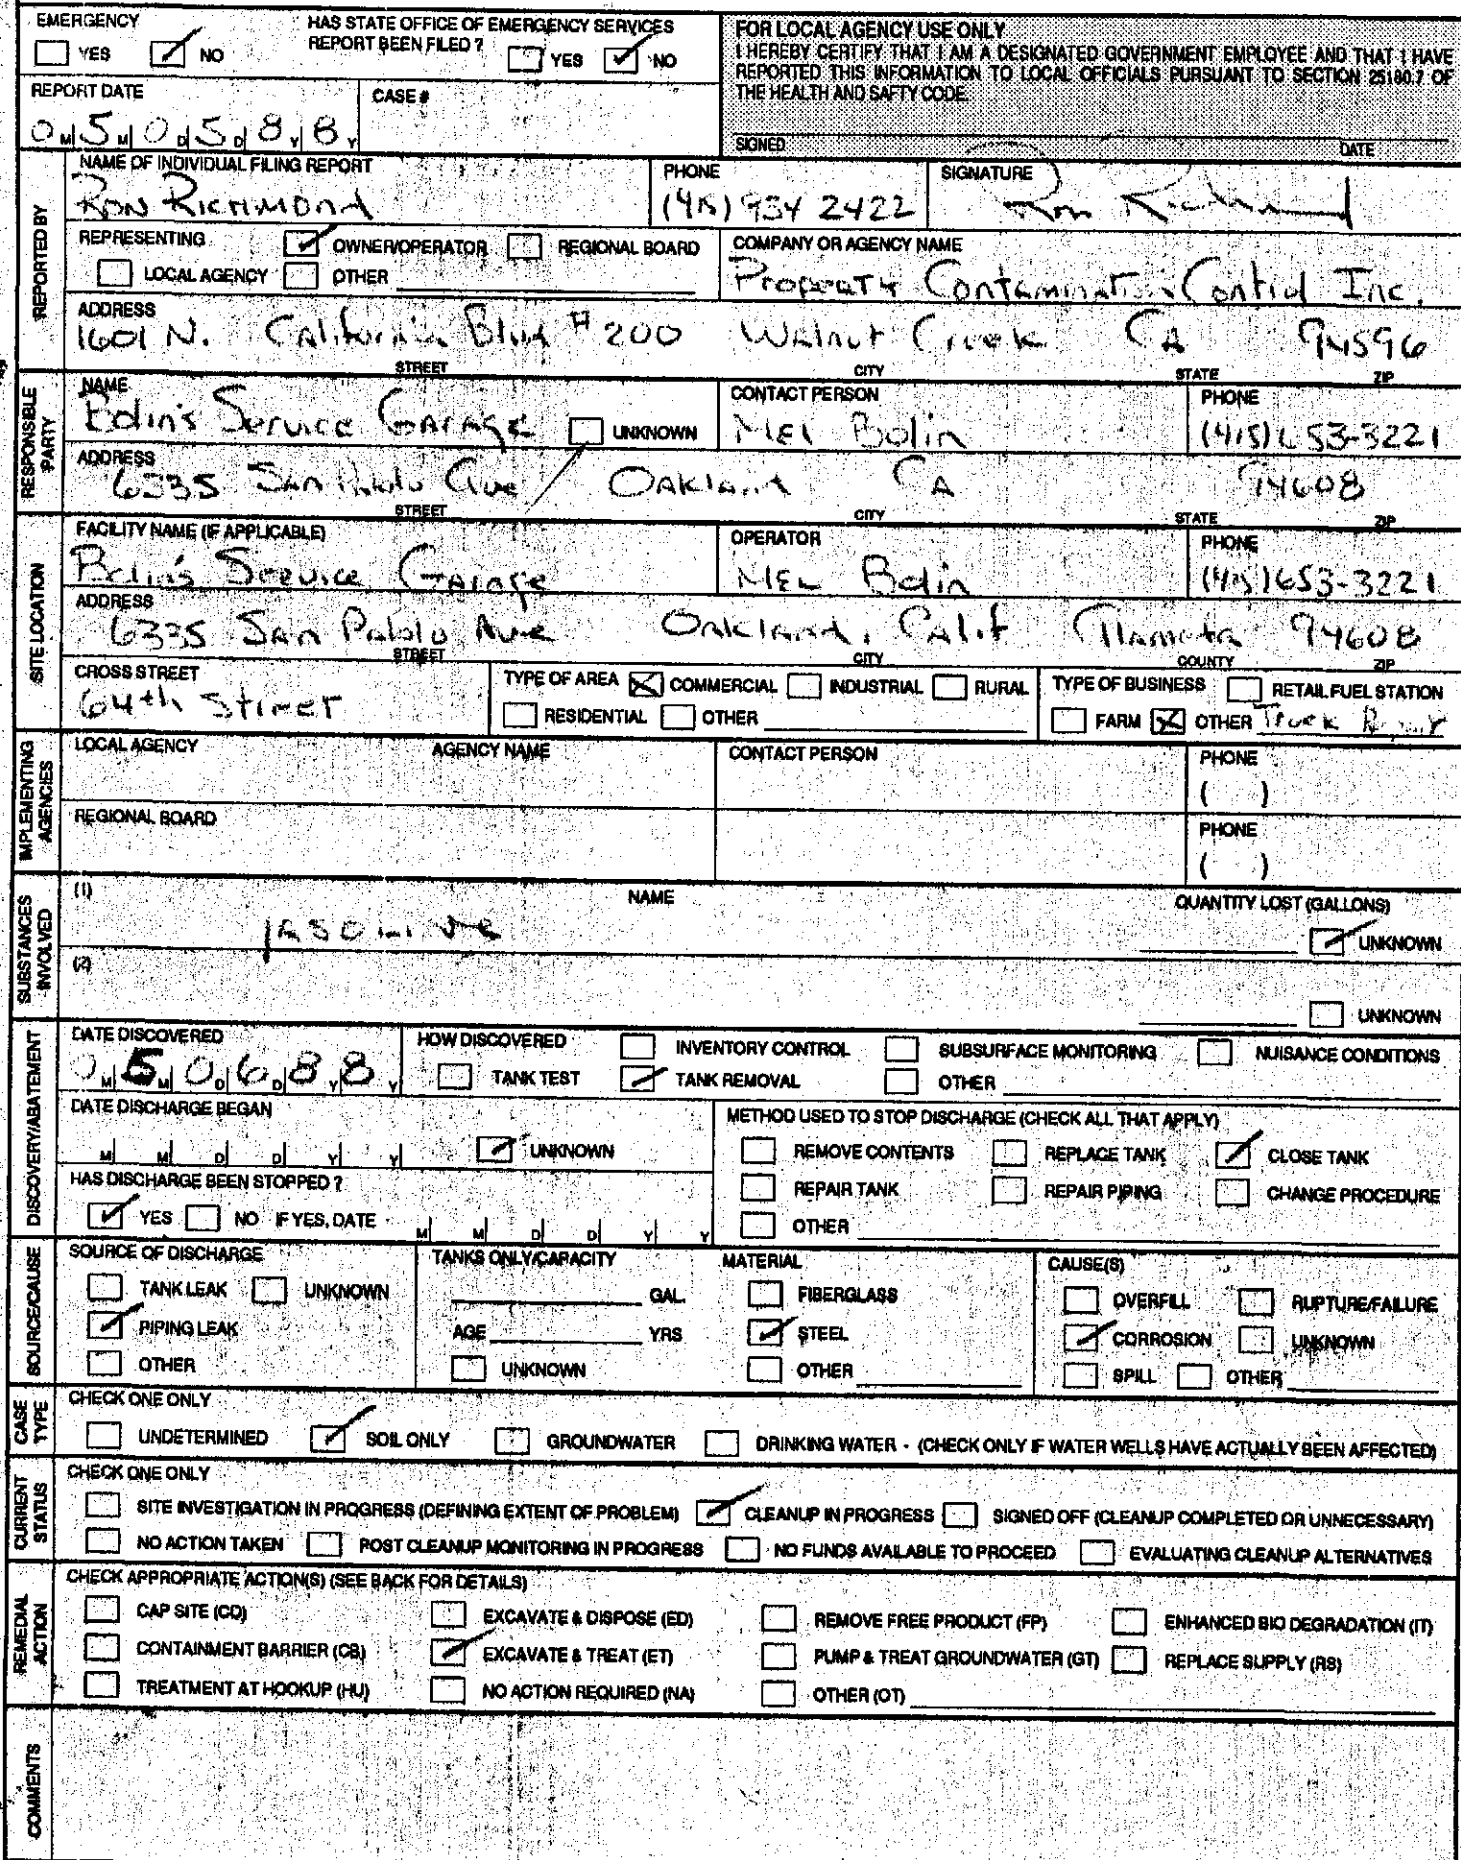 EMERGENCY
YES NO
HAS STATE OFFICE OF EMERGENCY SERVICES
REPORT BEEN FILED ? YES NO
FOR LOCAL AGENCY USE ONLY
I HEREBY CERTIFY THAT I AM A DESIGNATED GOVERNMENT EMPLOYEE AND THAT I HAVE
REPORTED THIS INFORMATION TO LOCAL OFFICIALS PURSUANT TO SECTION 25180.7 OF
THE HEALTH AND SAFTY CODE.
SIGNED DATE
REPORT DATE
0 M 5 M 0 D 5 D 8 Y 8 Y
CASE #
REPORTED BY
NAME OF INDIVIDUAL FILING REPORT
RON RICHMOND
PHONE
(415) 934 2422
SIGNATURE
Ron Richmond
REPRESENTING OWNER/OPERATOR REGIONAL BOARD
LOCAL AGENCY OTHER
COMPANY OR AGENCY NAME
Property Contamination Control Inc.
ADDRESS
1601 N. California Blvd # 200 Walnut Creek CA 94596
STREET CITY STATE ZIP
RESPONSIBLE PARTY
NAME
Bolin's Service Garage UNKNOWN
CONTACT PERSON
Mel Bolin
PHONE
(415) 653-3221
ADDRESS
6335 San Pablo Ave Oakland CA 94608
STREET CITY STATE ZIP
SITE LOCATION
FACILITY NAME (IF APPLICABLE)
Bolin's Service Garage
OPERATOR
MEL Bolin
PHONE
(415) 653-3221
ADDRESS
6335 San Pablo Ave Oakland, Calif Alameda 94608
STREET CITY COUNTY ZIP
CROSS STREET
64th Street
TYPE OF AREA COMMERCIAL INDUSTRIAL RURAL
RESIDENTIAL OTHER
TYPE OF BUSINESS RETAIL FUEL STATION
FARM OTHER Truck Repair
IMPLEMENTING AGENCIES
LOCAL AGENCY AGENCY NAME
CONTACT PERSON
PHONE
( )
REGIONAL BOARD
PHONE
( )
SUBSTANCES INVOLVED
(1) NAME QUANTITY LOST (GALLONS)
UNKNOWN
(2)
UNKNOWN
DISCOVERY/ABATEMENT
DATE DISCOVERED
0 M 5 M 0 D 6 D 8 Y 8 Y
HOW DISCOVERED INVENTORY CONTROL SUBSURFACE MONITORING NUISANCE CONDITIONS
TANK TEST TANK REMOVAL OTHER
DATE DISCHARGE BEGAN
M M D D Y Y UNKNOWN
METHOD USED TO STOP DISCHARGE (CHECK ALL THAT APPLY)
REMOVE CONTENTS REPLACE TANK CLOSE TANK
REPAIR TANK REPAIR PIPING CHANGE PROCEDURE
OTHER
HAS DISCHARGE BEEN STOPPED ?
YES NO IF YES, DATE M M D D Y Y
SOURCE/CAUSE
SOURCE OF DISCHARGE
TANK LEAK UNKNOWN
PIPING LEAK
OTHER
TANKS ONLY/CAPACITY
GAL.
AGE YRS
UNKNOWN
MATERIAL
FIBERGLASS
STEEL
OTHER
CAUSE(S)
OVERFILL RUPTURE/FAILURE
CORROSION UNKNOWN
SPILL OTHER
CASE TYPE
CHECK ONE ONLY
UNDETERMINED SOIL ONLY GROUNDWATER DRINKING WATER - (CHECK ONLY IF WATER WELLS HAVE ACTUALLY BEEN AFFECTED)
CURRENT STATUS
CHECK ONE ONLY
SITE INVESTIGATION IN PROGRESS (DEFINING EXTENT OF PROBLEM) CLEANUP IN PROGRESS SIGNED OFF (CLEANUP COMPLETED OR UNNECESSARY)
NO ACTION TAKEN POST CLEANUP MONITORING IN PROGRESS NO FUNDS AVAILABLE TO PROCEED EVALUATING CLEANUP ALTERNATIVES
REMEDIAL ACTION
CHECK APPROPRIATE ACTION(S) (SEE BACK FOR DETAILS)
CAP SITE (CD) EXCAVATE & DISPOSE (ED) REMOVE FREE PRODUCT (FP) ENHANCED BIO DEGRADATION (IT)
CONTAINMENT BARRIER (CB) EXCAVATE & TREAT (ET) PUMP & TREAT GROUNDWATER (GT) REPLACE SUPPLY (RS)
TREATMENT AT HOOKUP (HU) NO ACTION REQUIRED (NA) OTHER (OT)
COMMENTS